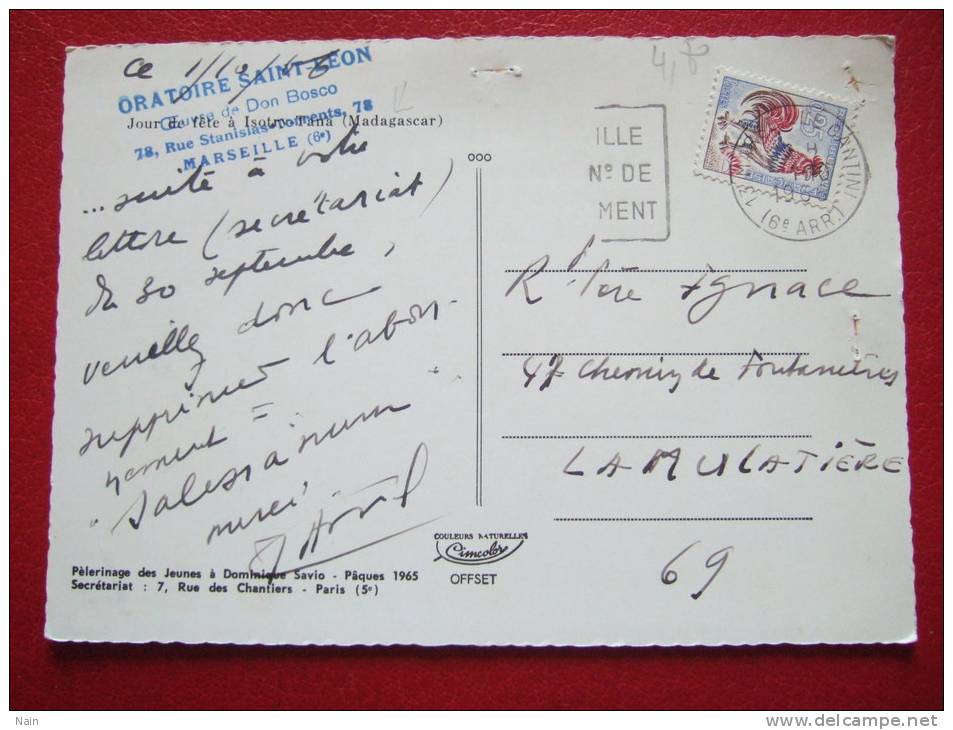 ce 1/10/
ORATOIRE SAINT-LEON
Œuvre de Don Bosco
78, Rue Stanislas-Torrents, 78
MARSEILLE (6e)
Jour de fête à Isotry-Tana (Madagascar)
... suite à votre
lettre (secrétariat)
du 30 septembre,
veuillez donc
supprimer l'abon-
nement =
"Salesianum
merci
Pèlerinage des Jeunes à Dominique Savio - Pâques 1965
Secrétariat : 7, Rue des Chantiers - Paris (5e)
ooo
COULEURS NATURELLES
Cimcolor
OFFSET
ILLE
No DE
MENT
0,25
(6e ARR.)
Rd Père Ignace
47 Chemin de Fontanières
LA MULATIÈRE
69
Nain
www.delcampe.net